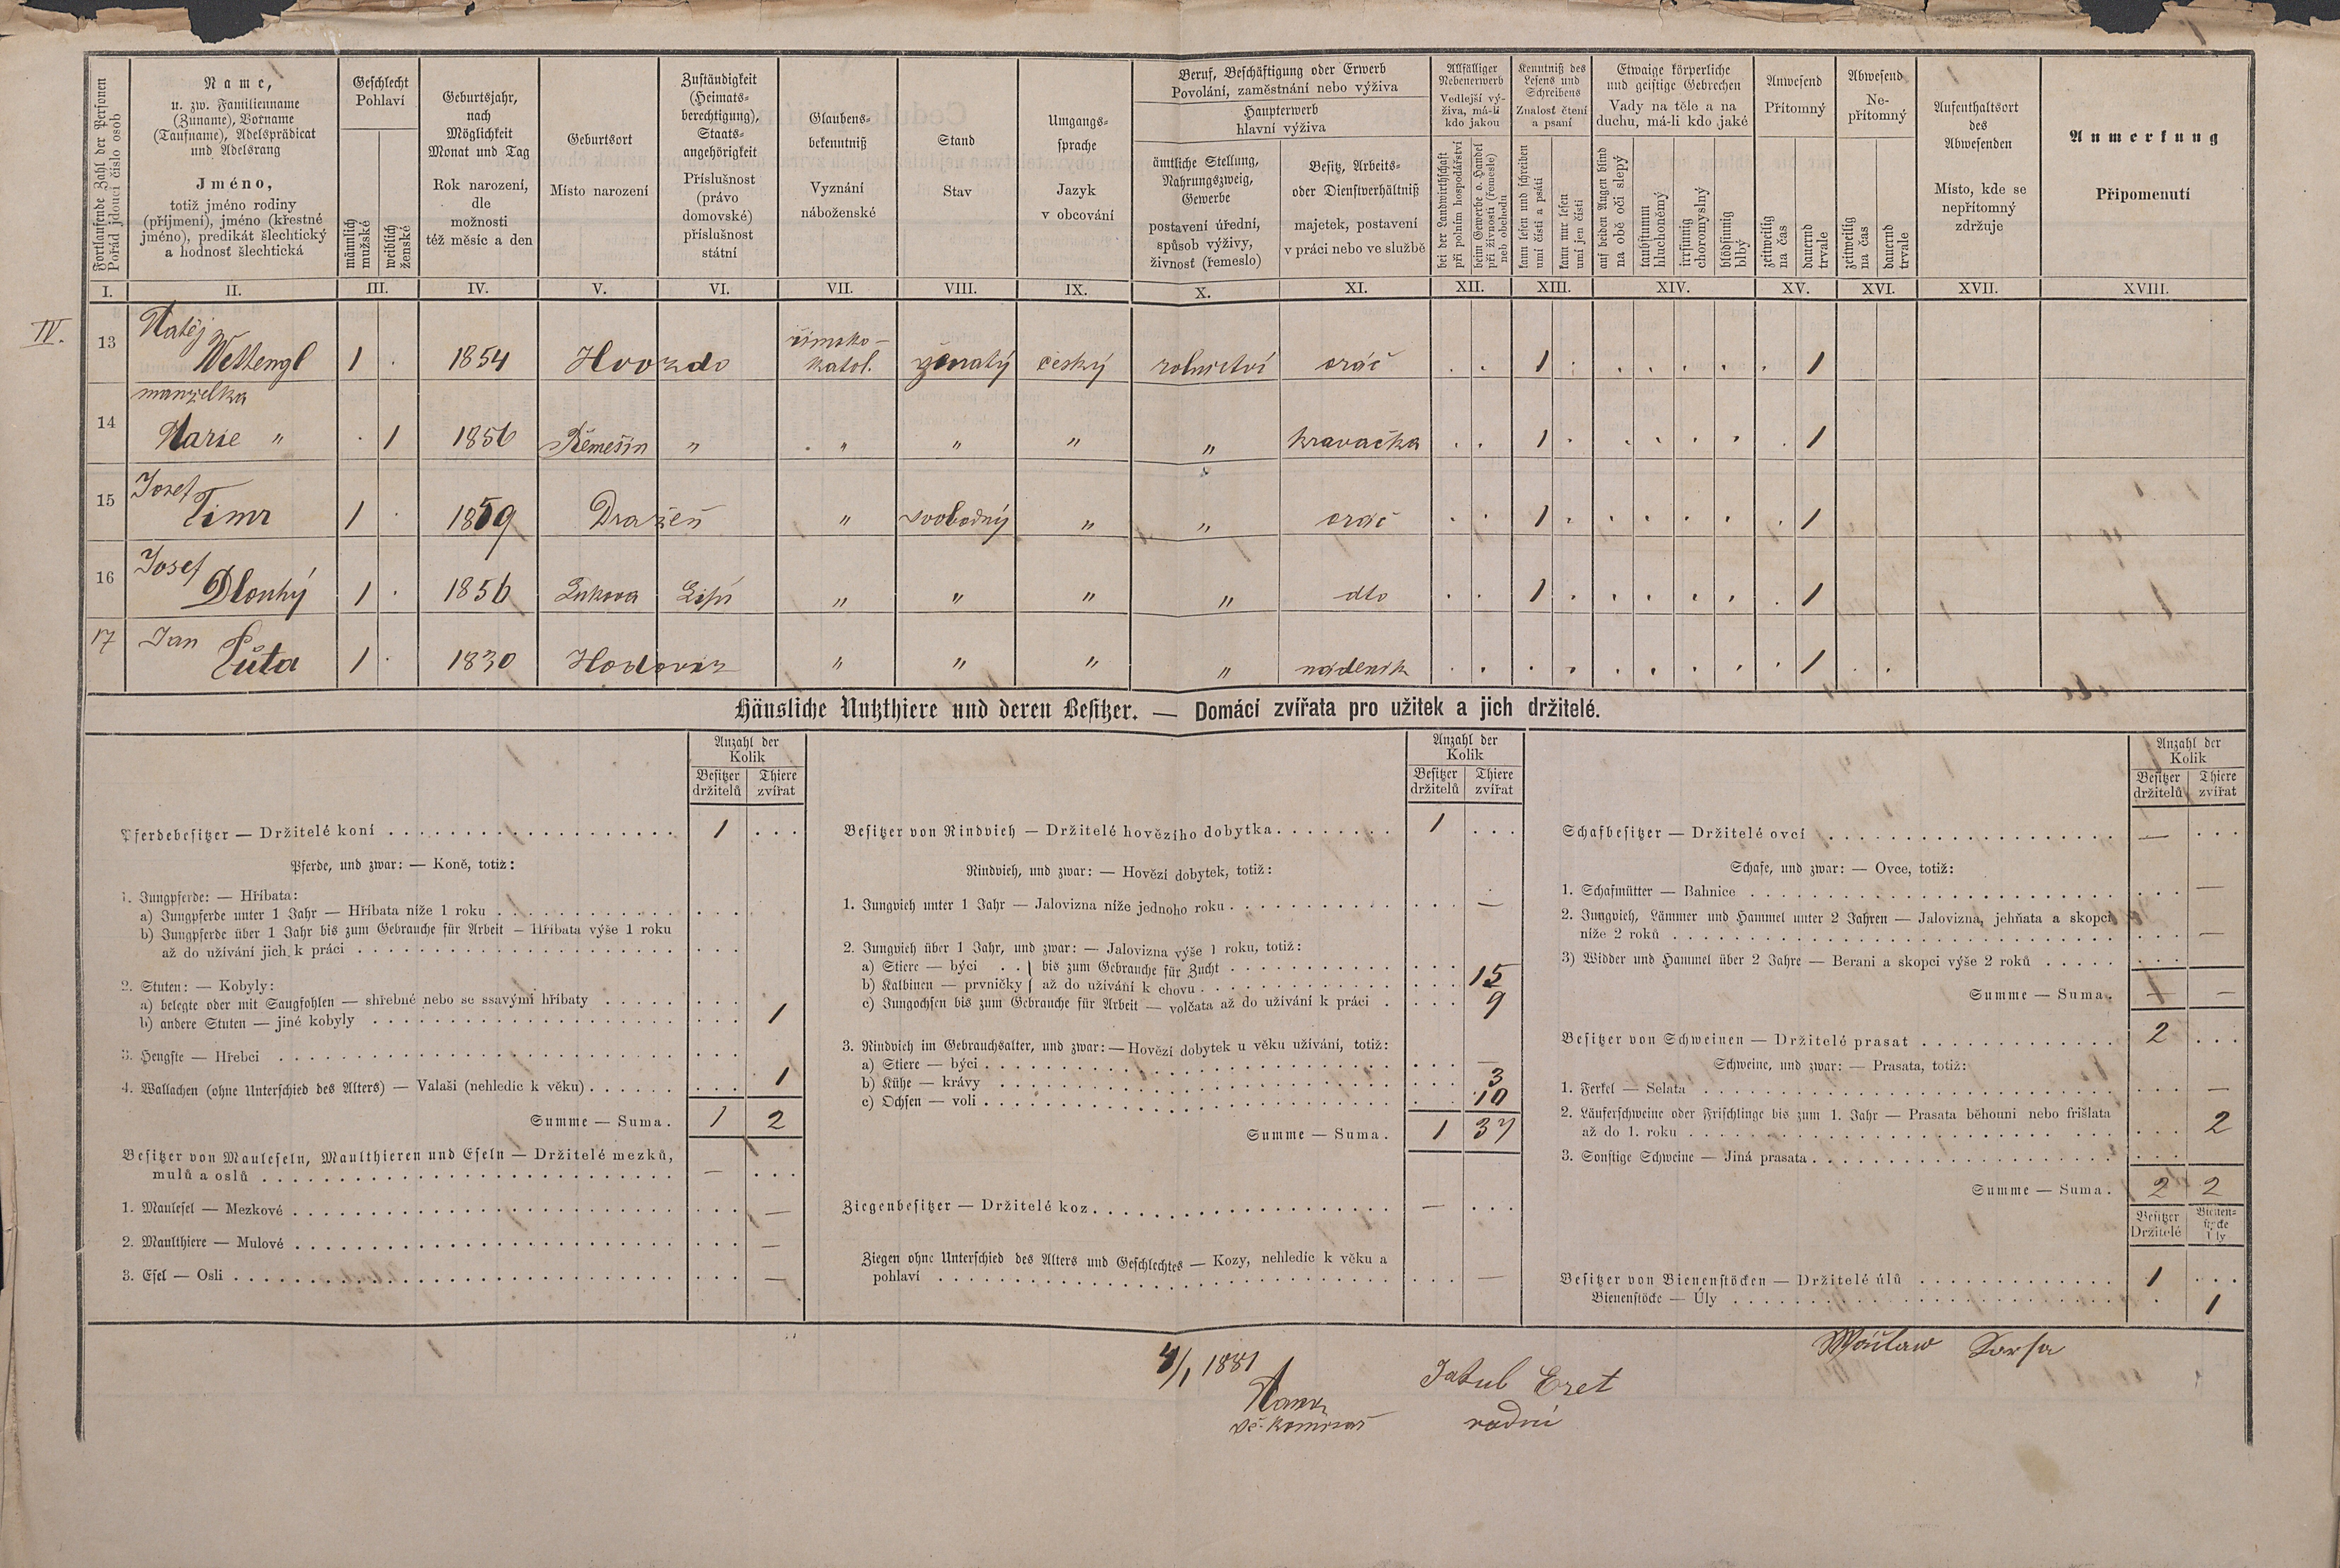 Fortlaufende Zahl der Personen
Pořád jdoucí číslo osob
Name,
u. zw. Familienname
(Zuname), Vorname
(Taufname), Adelsprädicat
und Adelsrang
Jméno,
totiž jméno rodiny
(příjmení), jméno (křestné
jméno), predikát šlechtický
a hodnosť šlechtická
Geschlecht
Pohlaví
männlich
mužské
weiblich
ženské
Geburtsjahr,
nach
Möglichkeit
Monat und Tag
Rok narození,
dle
možnosti
též měsíc a den
Geburtsort
Místo narození
Zuständigkeit
(Heimats-
berechtigung),
Staats-
angehörigkeit
Příslušnost
(právo
domovské)
příslušnost
státní
Glaubens-
bekenntniß
Vyznání
náboženské
Stand
Stav
Umgangs-
sprache
Jazyk
v obcování
Beruf, Beschäftigung oder Erwerb
Povolání, zaměstnání nebo výživa
Haupterwerb
hlavní výživa
ämtliche Stellung,
Nahrungszweig,
Gewerbe
postavení úřední,
spůsob výživy,
živnosť (řemeslo)
Besitz, Arbeits-
oder Dienstverhältniß
majetek, postavení
v práci nebo ve službě
Allfälliger
Nebenerwerb
Vedlejší vý-
živa, má-li
kdo jakou
bei der Landwirthschaft
při polním hospodářství
beim Gewerbe o. Handel
při živnosti (řemesle)
neb obchodu
Kenntniß des
Lesens und
Schreibens
Znalosť čtení
a psaní
kann lesen und schreiben
umí čísti a psáti
kann nur lesen
umí jen čísti
Etwaige körperliche
und geistige Gebrechen
Vady na těle a na
duchu, má-li kdo jaké
auf beiden Augen blind
na obě oči slepý
taubstumm
hluchoněmý
irrsinnig
choromyslný
blödsinnig
blbý
Anwesend
Přítomný
zeitweilig
na čas
dauernd
trvale
Abwesend
Ne-
přítomný
zeitweilig
na čas
dauernd
trvale
Aufenthaltsort
des
Abwesenden
Místo, kde se
nepřítomný
zdržuje
Anmerkung
Připomenutí
I. II. III. IV. V. VI. VII. VIII. IX. X. XI. XII. XIII. XIV. XV. XVI. XVII. XVIII.
IV.
13 Matěj Wettengl 1 . 1854 Hvozdo římsko-katol. ženatý český rolnictví oráč . . 1 . . . . . . 1
manželka
14 Marie " . 1 1856 Řemešín " " " " " kravačka . . 1 . . . . . . 1
15 Josef Timr 1 . 1859 Dražeň " svobodný " " oráč . . 1 . . . . . . 1
16 Josef Dlouhý 1 . 1856 Lukova " " " " dto . . 1 . . . . . . 1
17 Jan Půta 1 . 1830 Hodoviz " " " " nádeník . . . . . . . . . 1 . .
Häusliche Nutzthiere und deren Besitzer. — Domácí zvířata pro užitek a jich držitelé.
Anzahl der
Kolik
Besitzer
držitelů
Thiere
zvířat
Pferdebesitzer — Držitelé koní 1
Pferde, und zwar: — Koně, totiž:
1. Jungpferde: — Hříbata:
a) Jungpferde unter 1 Jahr — Hříbata níže 1 roku
b) Jungpferde über 1 Jahr bis zum Gebrauche für Arbeit — Hříbata výše 1 roku
až do užívání jich k práci
2. Stuten: — Kobyly:
a) belegte oder mit Saugfohlen — shřebné nebo se ssavými hříbaty
b) andere Stuten — jiné kobyly 1
3. Hengste — Hřebci
4. Wallachen (ohne Unterschied des Alters) — Valaši (nehledíc k věku) 1
Summe — Suma. 1 2
Besitzer von Mauleseln, Maulthieren und Eseln — Držitelé mezků,
mulů a oslů —
1. Maulesel — Mezkové —
2. Maulthiere — Mulové —
3. Esel — Osli —
Anzahl der
Kolik
Besitzer
držitelů
Thiere
zvířat
Besitzer von Rindvieh — Držitelé hovězího dobytka 1
Rindvieh, und zwar: — Hovězí dobytek, totiž:
1. Jungvieh unter 1 Jahr — Jalovizna níže jednoho roku —
2. Jungvieh über 1 Jahr, und zwar: — Jalovizna výše 1 roku, totiž:
a) Stiere — býci . . } bis zum Gebrauche für Zucht
b) Kalbinen — prvničky } až do užívání k chovu 15
c) Jungochsen bis zum Gebrauche für Arbeit — volčata až do užívání k práci 9
3. Rindvieh im Gebrauchsalter, und zwar: — Hovězí dobytek u věku užívání, totiž:
a) Stiere — býci —
b) Kühe — krávy 3
c) Ochsen — voli 10
Summe — Suma. 1 37
Ziegenbesitzer — Držitelé koz —
Ziegen ohne Unterschied des Alters und Geschlechtes — Kozy, nehledíc k věku a
pohlaví —
Anzahl der
Kolik
Besitzer
držitelů
Thiere
zvířat
Schafbesitzer — Držitelé ovcí —
Schafe, und zwar: — Ovce, totiž:
1. Schafmütter — Bahnice —
2. Jungvieh, Lämmer und Hammel unter 2 Jahren — Jalovizna, jehňata a skopci
níže 2 roků —
3) Widder und Hammel über 2 Jahre — Berani a skopci výše 2 roků
Summe — Suma. — —
Besitzer von Schweinen — Držitelé prasat 2
Schweine, und zwar: — Prasata, totiž:
1. Ferkel — Selata —
2. Läuferschweine oder Frischlinge bis zum 1. Jahr — Prasata běhouni nebo frišlata
až do 1. roku 2
3. Sonstige Schweine — Jiná prasata
Summe — Suma. 2 2
Besitzer
Držitelé
Bienen-
stöcke
Úly
Besitzer von Bienenstöcken — Držitelé úlů 1
Bienenstöcke — Úly 1
4/1 1881
Jakub Eret
radní